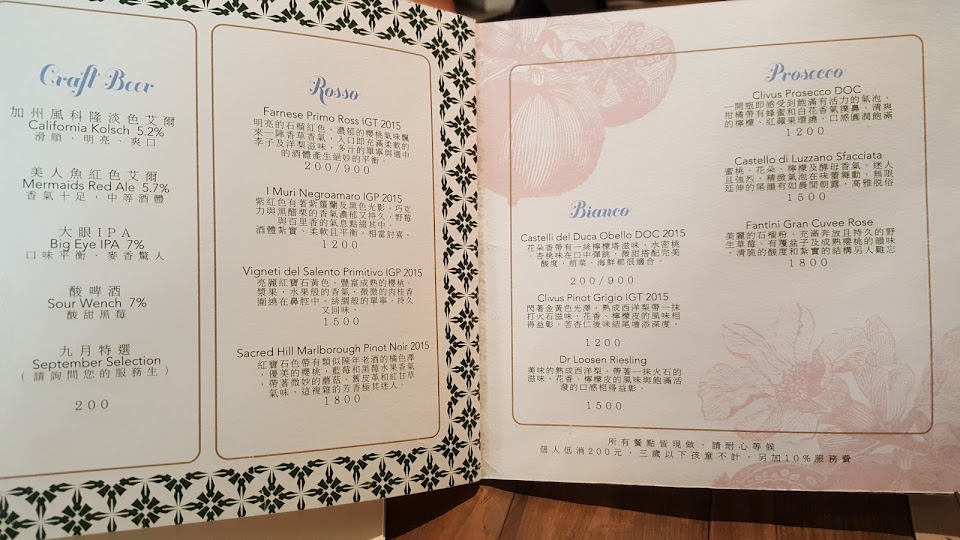 Craft Beer
加州風科隆淡色艾爾
California Kolsch 5.2%
滑順、明亮、爽口
美人魚紅色艾爾
Mermaids Red Ale 5.7%
香氣十足，中等酒體
大眼IPA
Big Eye IPA 7%
口味平衡、麥香驚人
酸啤酒
Sour Wench 7%
酸甜黑莓
九月特選
September Selection
(請詢問您的服務生)
200
Rosso
Farnese Primo Ross IGT 2015
明亮的石榴紅色，濃郁的櫻桃氣味飄
來一陣香草香氣，入口即充滿柔軟的
李子及洋梨滋味，多汁的單寧與適中
的酒體產生絕妙的平衡。
200/900
I Muri Negroamaro IGP 2015
紫紅色有著紫蘿蘭及黑色光影，巧克
力與黑醋栗的香氣濃郁又持久，野莓
與百里香的氣息點綴其中，
酒體紮實、柔軟且平衡，相當討喜。
1200
Vigneti del Salento Primitivo IGP 2015
亮麗紅寶石黃色，豐富成熟的櫻桃、
漿果，水果般的香氣，微微的肉桂香
圍繞在鼻腔中。絲綢般的單寧，持久
又回味。
1500
Sacred Hill Marlborough Pinot Noir 2015
紅寶石色帶有類似陳年老酒的橘色澤
，優美的櫻桃，藍莓和黑莓水果香氣
，帶著微妙的蘑菇、舊皮革和紅甘草
氣味，這複雜的芳香極其迷人。
1800
Bianco
Castelli del Duca Obello DOC 2015
花朵香帶有一絲檸檬塔滋味，水密桃
、杏桃味在口中彈跳，微甜搭配完美
酸度，前菜、海鮮都很適合。
200/900
Clivus Pinot Grigio IGT 2015
閃著金黃色光澤，熟成西洋梨帶一抹
打火石滋味，花香、檸檬皮的風味相
得益彰，苦杏仁後味結尾增添深度。
1200
Dr Loosen Riesling
美味的熟成西洋梨，帶著一抹火石的
滋味，花香、檸檬皮的風味與飽滿活
潑的口感相得益彰。
1500
Prosecco
Clivus Prosecco DOC
一開瓶即感受到飽滿有活力的氣泡，
柑橘帶有蜂蜜和白花香氣撲鼻，清爽
的檸檬、紅蘋果環繞，口感圓潤飽滿
1200
Castello di Luzzano Sfacciata
蜜桃、花朵、檸檬及酵母香氣，迷人
且強烈。精緻氣泡在味蕾舞動，無限
延伸的尾韻有如晨間朝露，高雅脫俗
1500
Fantini Gran Cuvee Rose
美麗的石榴粉，充滿奔放且持久的野
生草莓、有覆盆子及成熟櫻桃的韻味
，清脆的酸度和紮實的結構另人難忘
1800
所有餐點皆現做，請耐心等候
個人低消200元，三歲以下孩童不計，另加10%服務費